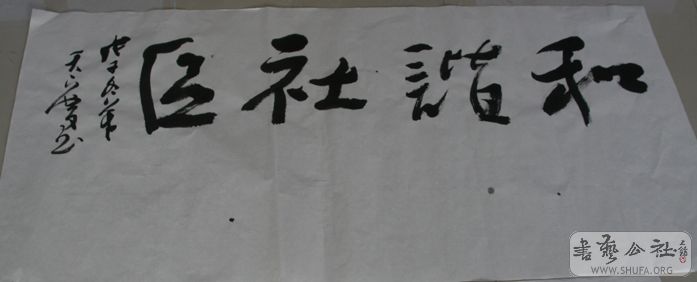 和諧社區
戊子冬月
書艺公社
WWW.SHUFA.ORG